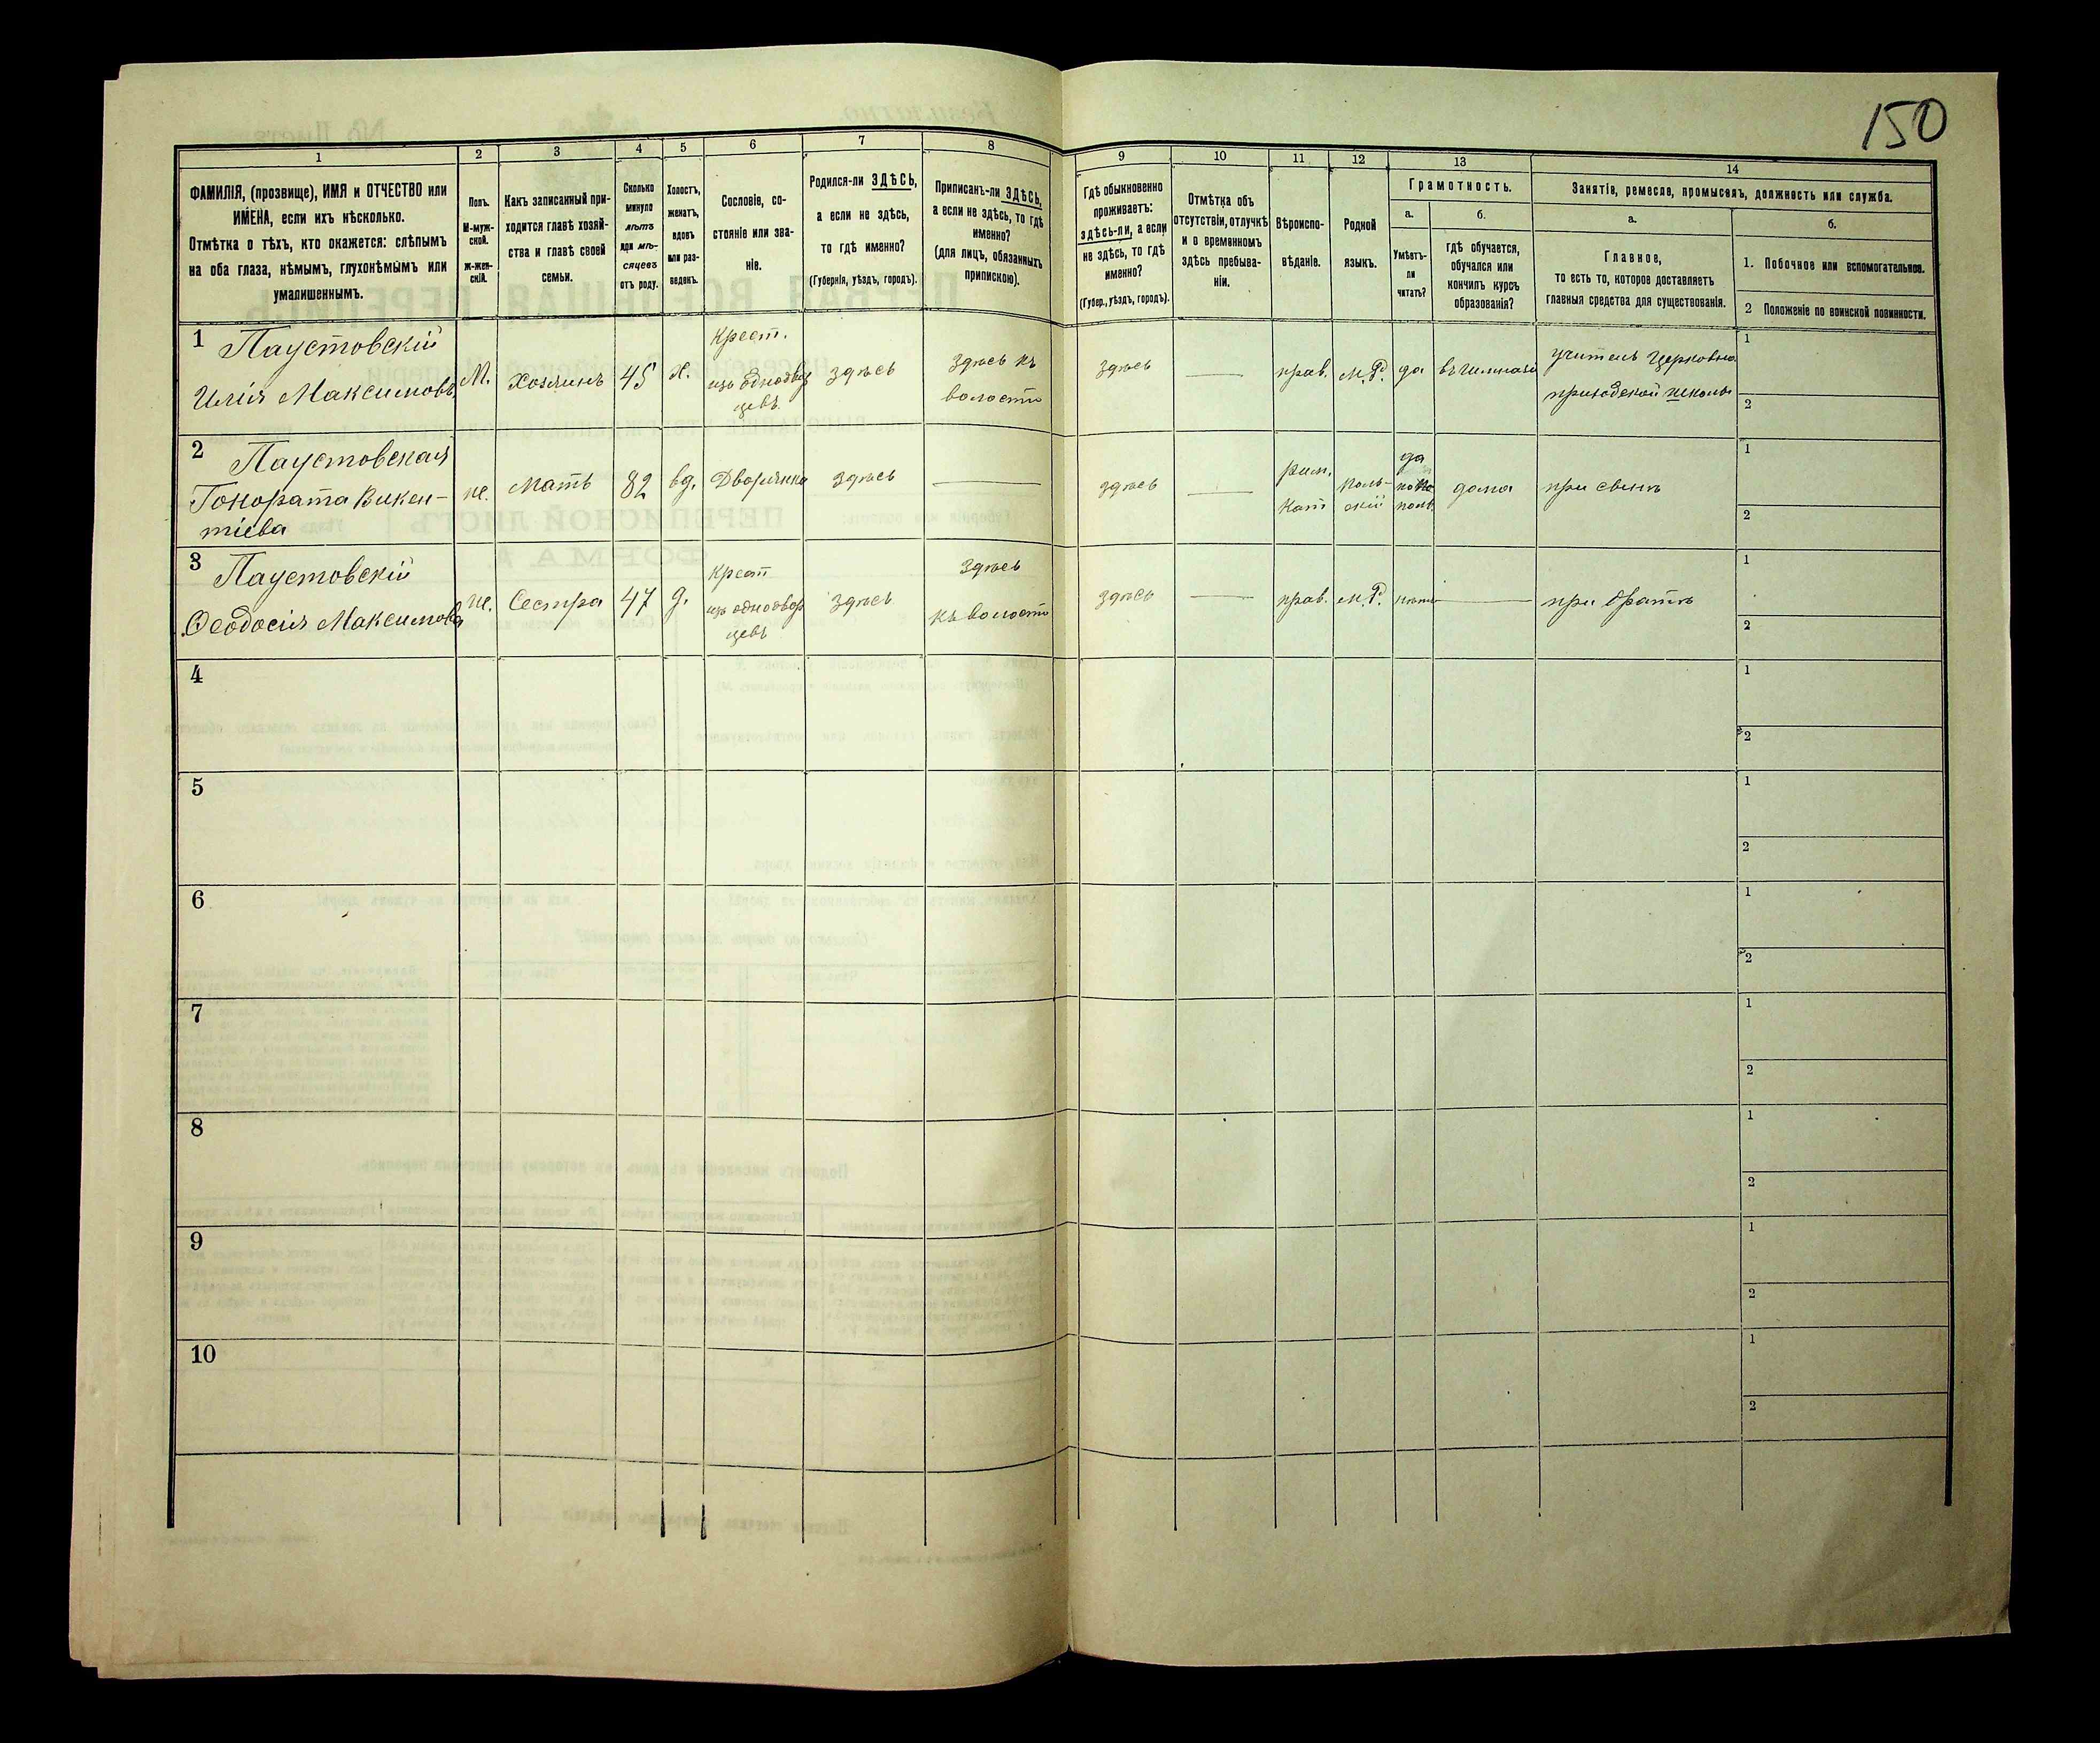 150
1
2
3
4
5
6
7
8
9
10
11
12
13
14
ФАМИЛІЯ, (прозвище), ИМЯ и ОТЧЕСТВО или
ИМЕНА, если ихъ нѣсколько.
Отмѣтка о тѣхъ, кто окажется: слѣпымъ
на оба глаза, нѣмымъ, глухонѣмымъ или
умалишеннымъ.
Полъ.
М-муж-
ской.
ж-жен-
скій.
Какъ записанный при-
ходится главѣ хозяй-
ства и главѣ своей
семьи.
Сколько
минуло
лѣтъ
или мѣ-
сяцевъ
отъ роду.
Холостъ,
женатъ,
вдовъ
или раз-
веденъ.
Сословіе, со-
стояніе или зва-
ніе.
Родился-ли ЗДѢСЬ,
а если не здѣсь,
то гдѣ именно?
(Губернія, уѣздъ, городъ).
Приписанъ-ли ЗДѢСЬ,
а если не здѣсь, то гдѣ
именно?
(для лицъ, обязанныхъ
припискою).
Гдѣ обыкновенно
проживаетъ:
здѣсь-ли, а если
не здѣсь, то гдѣ
именно?
(Губер., уѣздъ, городъ).
Отмѣтка объ
отсутствіи, отлучкѣ
и о временномъ
здѣсь пребыва-
ніи.
Вѣроиспо-
вѣданіе.
Родной
языкъ.
Грамотность.
а.
Умѣетъ-
ли
читать?
б.
гдѣ обучается,
обучался или
кончилъ курсъ
образованія?
Занятіе, ремесло, промыселъ, должность или служба.
а.
Главное,
то есть то, которое доставляетъ
главныя средства для существованія.
б.
1. Побочное или вспомогательное.
2 Положеніе по воинской повинности.
1 Паустовскій
Илія Максимовъ
М.
хозяинъ
45
х.
Крест.
изъ однодвор
цевъ
здѣсь
здѣсь къ
волости
здѣсь
прав.
М.Р.
да
въ гимназіи
учитель Церковно
приходской школы
1
2
2 Паустовская
Гонората Викен-
тіева
же.
мать
82
вд.
Дворянка
здѣсь
—
здѣсь
—
рим.
кат
поль-
скій
да
по
польс
дома
при сынѣ
1
2
3 Паустовскій
Ѳеодосія Максимова
же.
Сестра
47
д.
крест
изъ однодвор
цевъ
здѣсь
здѣсь
къ волости
здѣсь
—
прав.
М.Р.
нѣтъ
—
при братѣ
1
2
4
1
2
5
1
2
6
1
2
7
1
2
8
1
2
9
1
2
10
1
2